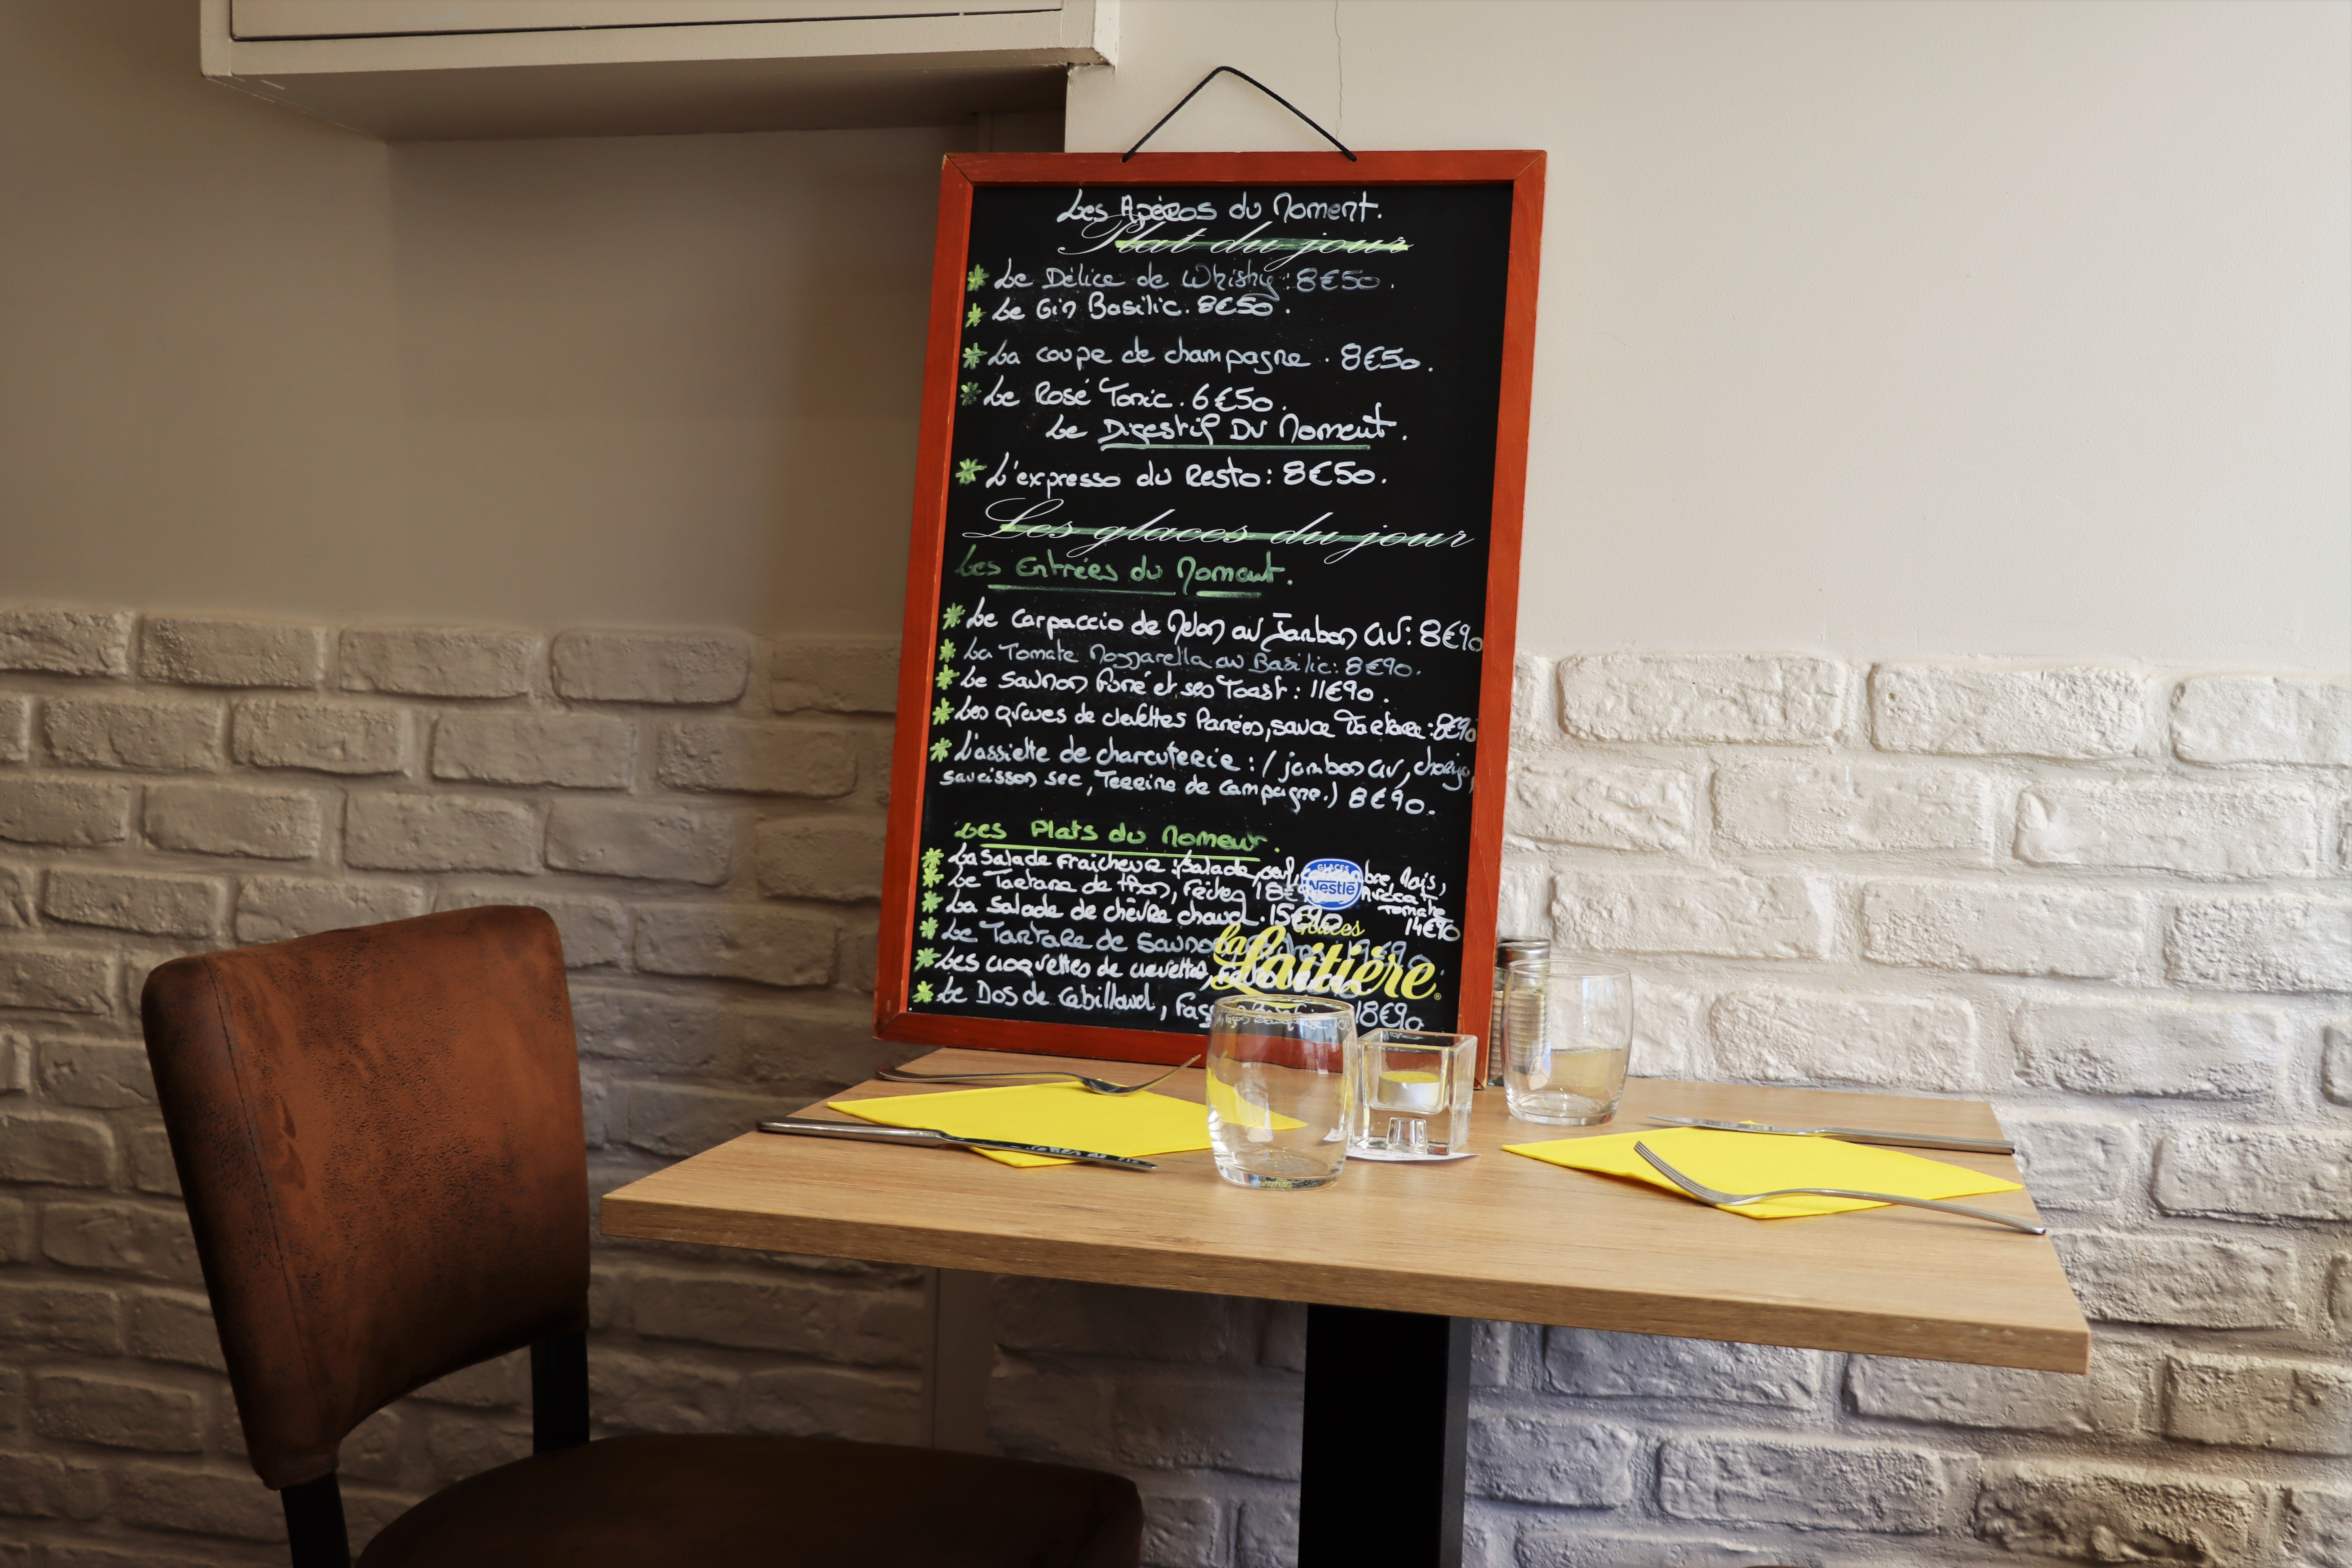 Les Apéros du Moment.
Plat du jour
Le Délice de Whisky : 8€50.
Le Gin Basilic. 8€50.
La coupe de champagne. 8€50.
Le Rosé Tonic. 6€50.
Le Digestif Du Moment.
L'expresso du Resto : 8€50.
Les glaces du jour
Les Entrées du Moment.
Le Carpaccio de Melon au Jambon cru : 8€90
La Tomate Mozzarella au Basilic : 8€90.
Le Saumon fumé et ses Toast : 11€90.
Les queues de crevettes Panées, sauce Tartare : 8€90
L'assiette de charcuterie : (jambon cru, chorizo,
saucisson sec, Terrine de campagne.) 8€90.
Les Plats du Moment.
La Salade Fraicheur : (Salade, Maïs,
Le Tartare de thon, frites Avocat
Tomate
La Salade de chèvre chaud. 15€90 14€90
GLACES
Nestlé
Glaces
la Laitière
Le Tartare de Saumon 19€90.
Les croquettes de crevettes,
Le Dos de Cabillaud, 18€90